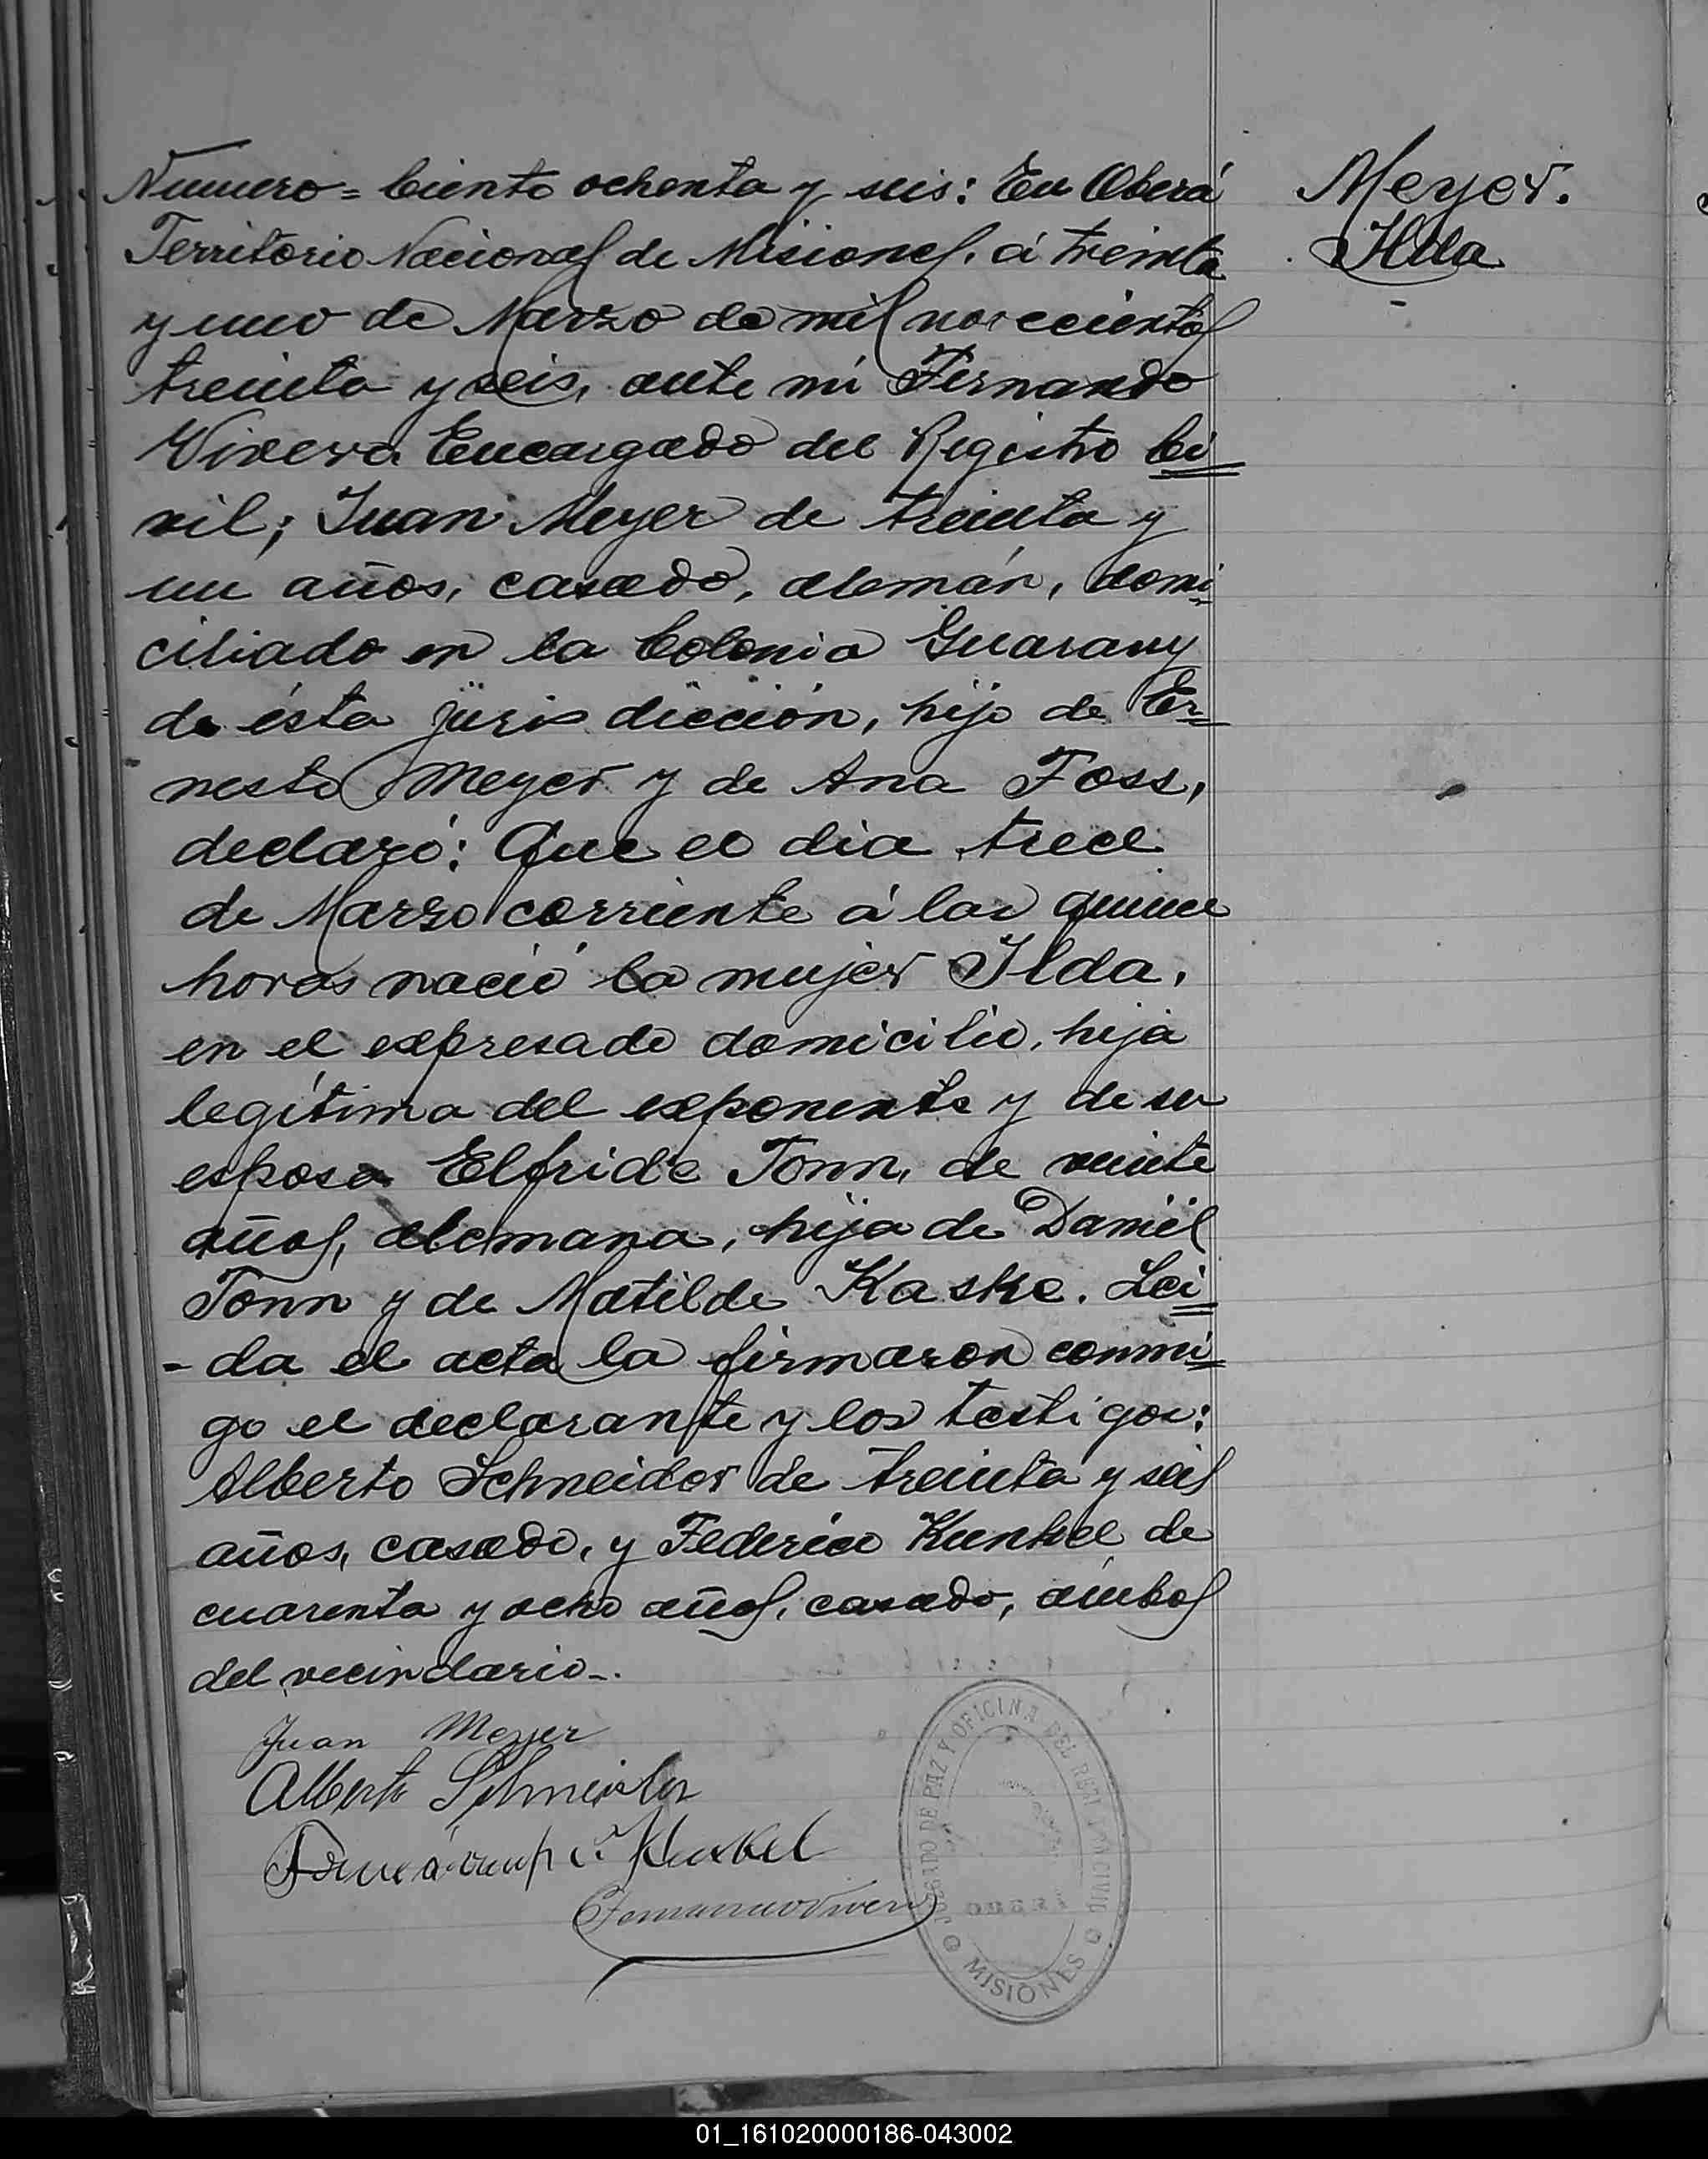 Numero = Ciento ochenta y seis: En Oberá
Territorio Nacional de Misiones, á treinta
y uno de Marzo de mil novecientos
treinta y seis, ante mi Fernando
Vivera Encargado del Registro Ci
vil; Juan Meyer de treinta y
un años, casado, alemán, domi
ciliado en la Colonia Guarany
de ésta jurisdicción, hijo de Er
nesto Meyer y de Ana Foss,
declaró: Que el dia trece
de Marzo corriente á las quince
horas nació la mujer Ilda,
en el expresado domicilio, hija
legítima del exponente y de su
esposa Elfride Tonn, de veinte
años, alemana, hija de Daniel
Tonn y de Matilde Kaske. Lei
-da el acta la firmaron conmi
go el declarante y los testigos:
Alberto Schneider de treinta y seis
años, casado, y Federico Kunkel de
cuarenta y ocho años, casado, ambos
del vecindario-.
Meyer.
Ilda
Juan Meyer
Alberto Schneider
Kunkel
JUZGADO DE PAZ Y OFICINA DEL REGISTRO CIVIL
OBERA
MISIONES
01_161020000186-043002